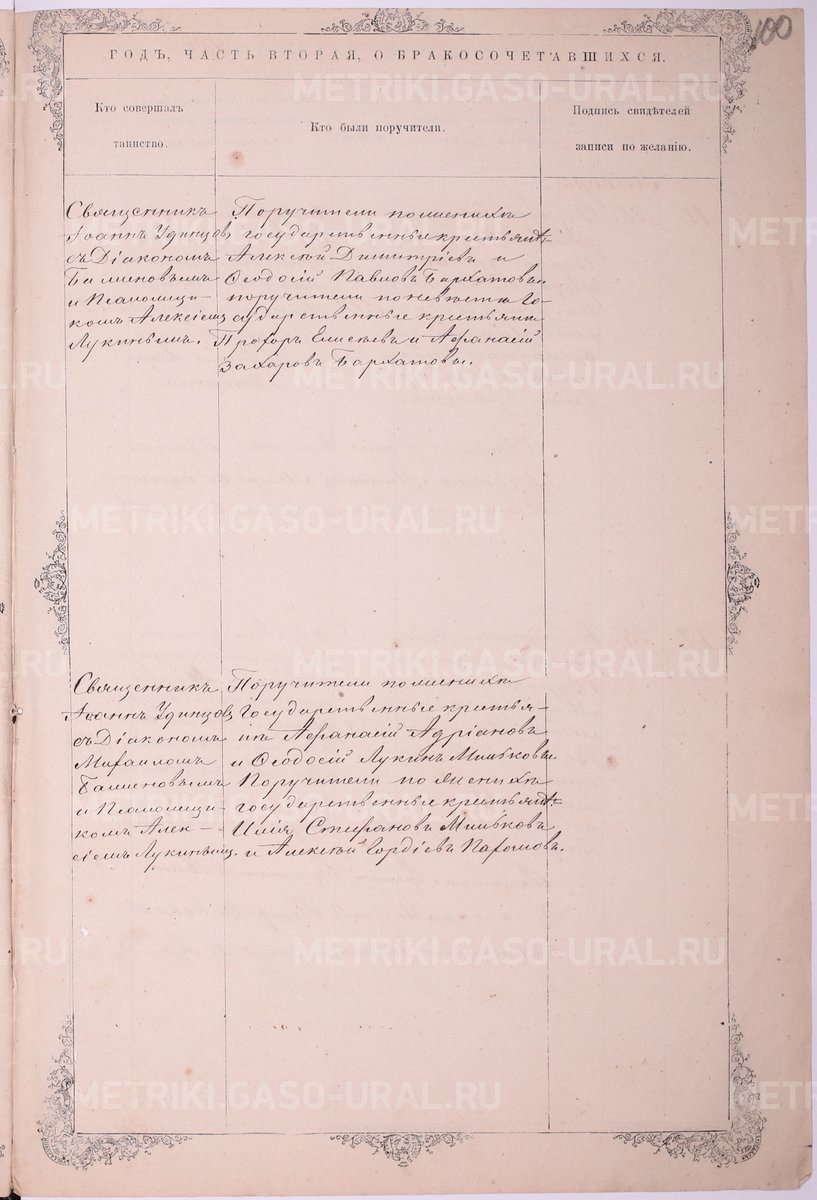 100
ГОДЪ, ЧАСТЬ ВТОРАЯ, О БРАКОСОЧЕТАВШИХСЯ.
Кто совершалъ
таинство.
Кто были поручители.
Подпись свидѣтелей
записи по желанію.
Священникъ
Іоаннъ Удинцов
съ Діакономъ
и Псаломщи-
комъ Алексіемъ
Лукинымъ.
Поручители по женихѣ
государственные крестьяне
Алексѣй Димитріевъ и
Ѳеодосій Павловъ Бархатовы
поручители по невѣстѣ го-
сударственные крестьяне
Прохоръ Елисѣевъ и Афанасій
Захаровъ Бархатовы.
Священникъ
Іоаннъ Удинцов
съ Діакономъ
Михаиломъ
и Псаломщи-
комъ Алек-
сіемъ Лукинымъ.
Поручители по женихѣ
Государственные крестья-
не Афанасій Адріановъ
и Ѳеодосій Лукинъ Мильковы.
Поручители по
государственные крестьяне
Илія Стефановъ Мильковъ
и Алексѣй Гордіевъ Пахомовъ.
METRIKI.GASO-URAL.RU